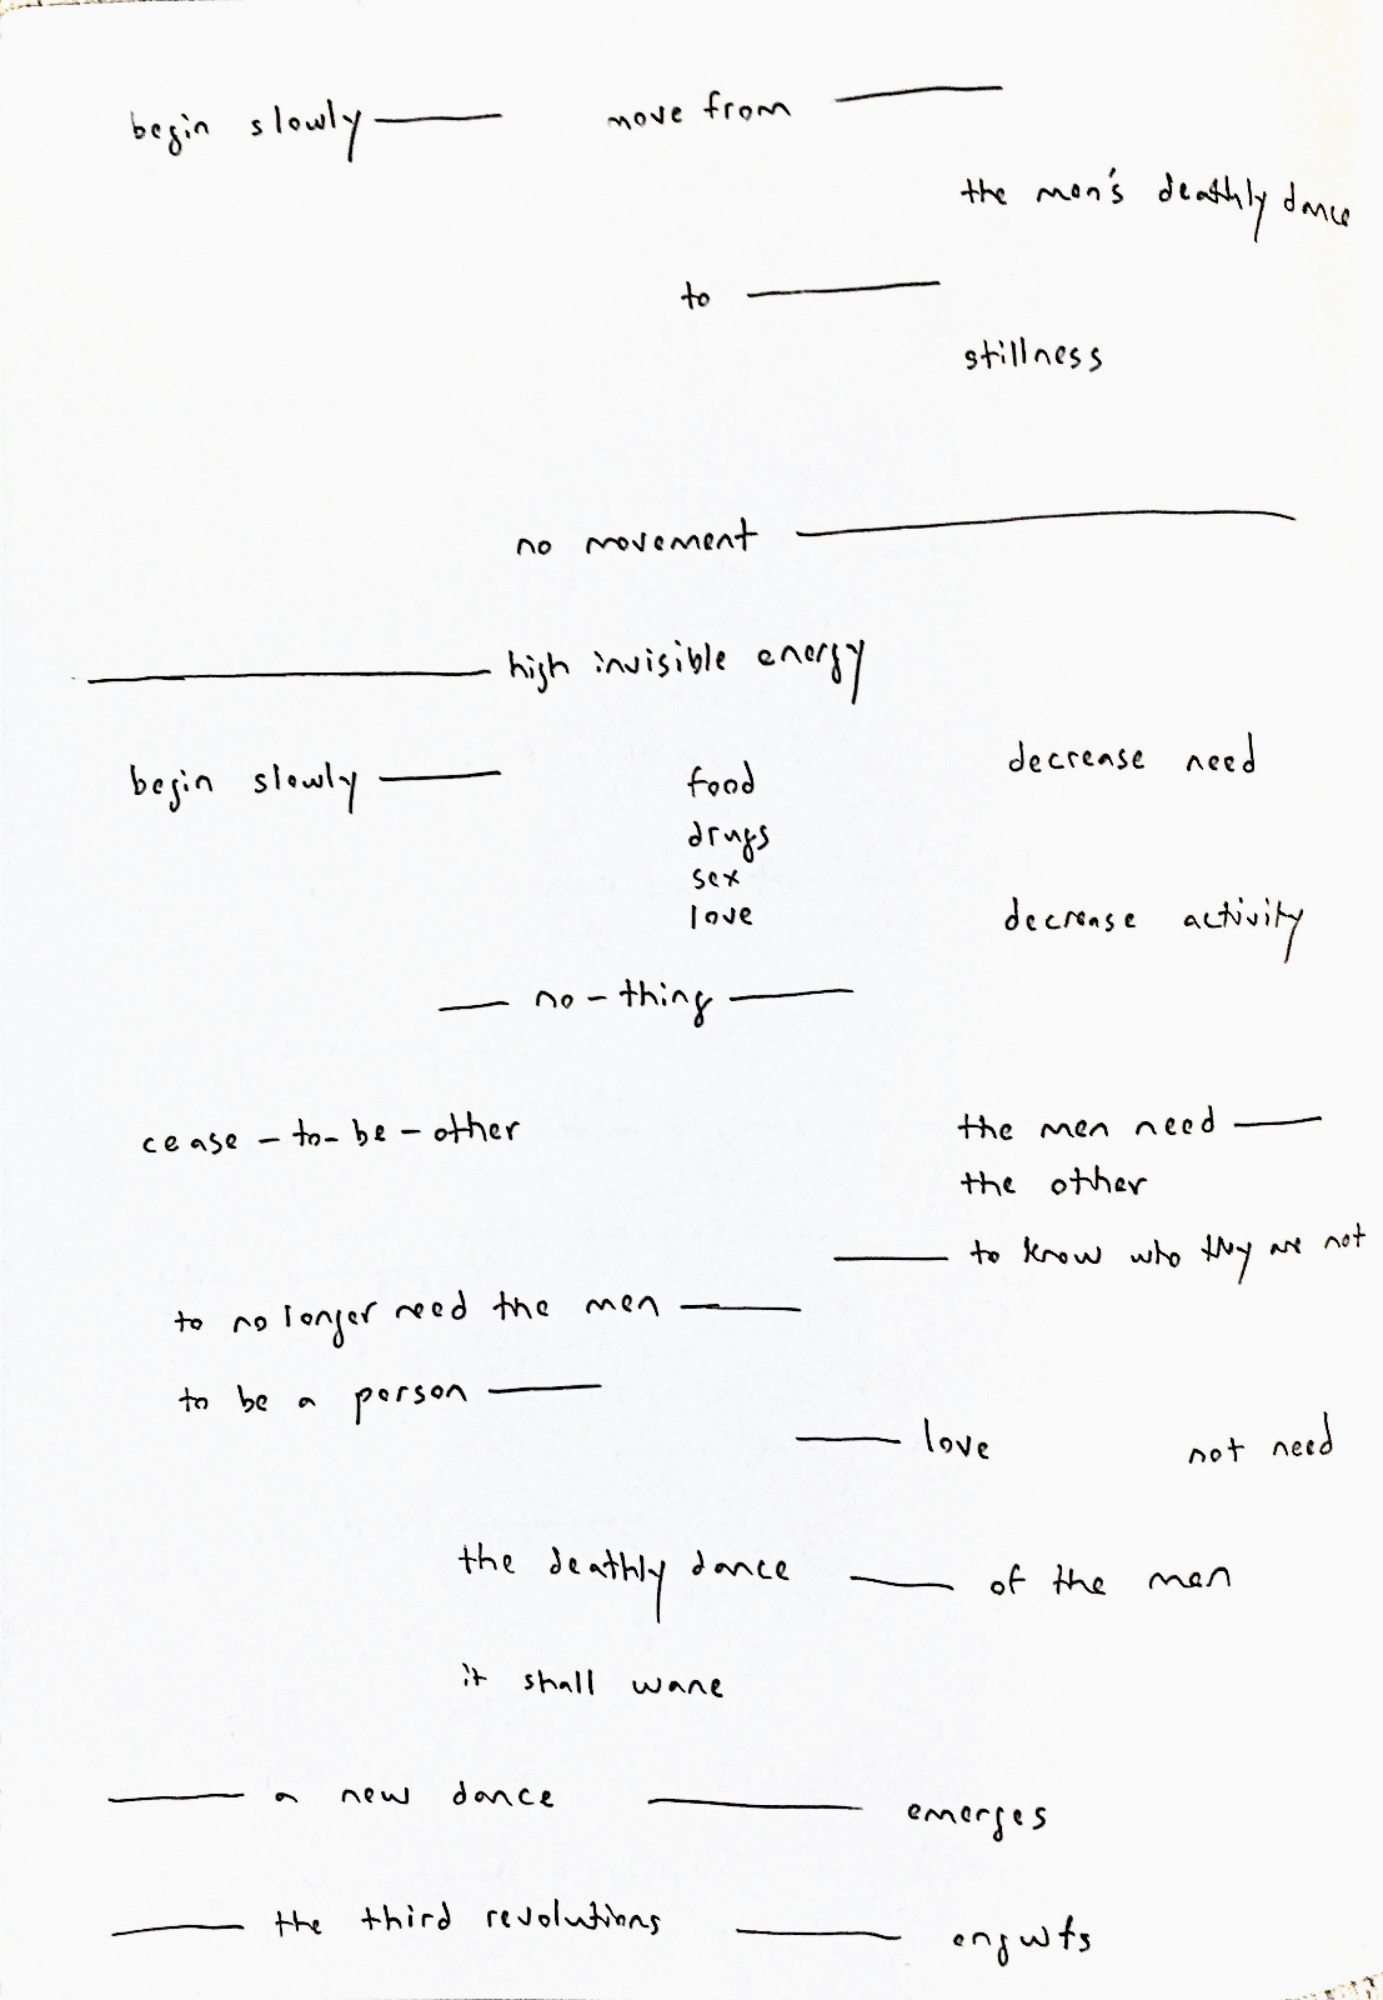 begin slowly —— move from ——
the men's deathly dance
to ——
stillness
no movement ——
—— high invisible energy
begin slowly —— food decrease need
drugs
sex
love decrease activity
— no-thing ——
cease-to-be-other the men need ——
the other
—— to know who they are not
to no longer need the men ——
to be a person ——
—— love not need
the deathly dance —— of the men
it shall wane
—— a new dance —— emerges
—— the third revolutions ——